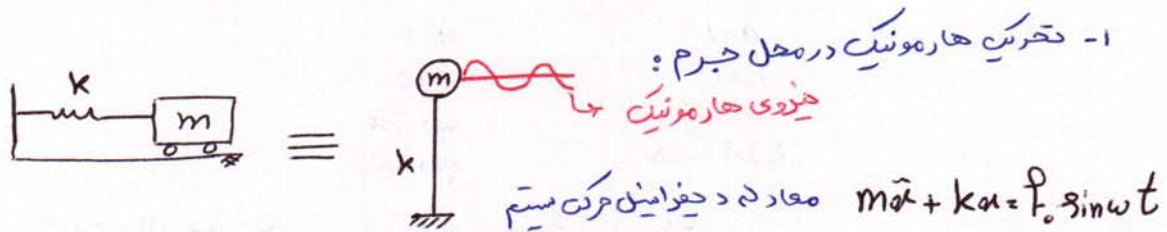 ۱- تحریک هارمونیک در محل جرم :
k
m
≡
m
نیروی هارمونیک
k
معادله دیفرانسیل حرکت سیستم mẍ + kx = P₀ sinωt